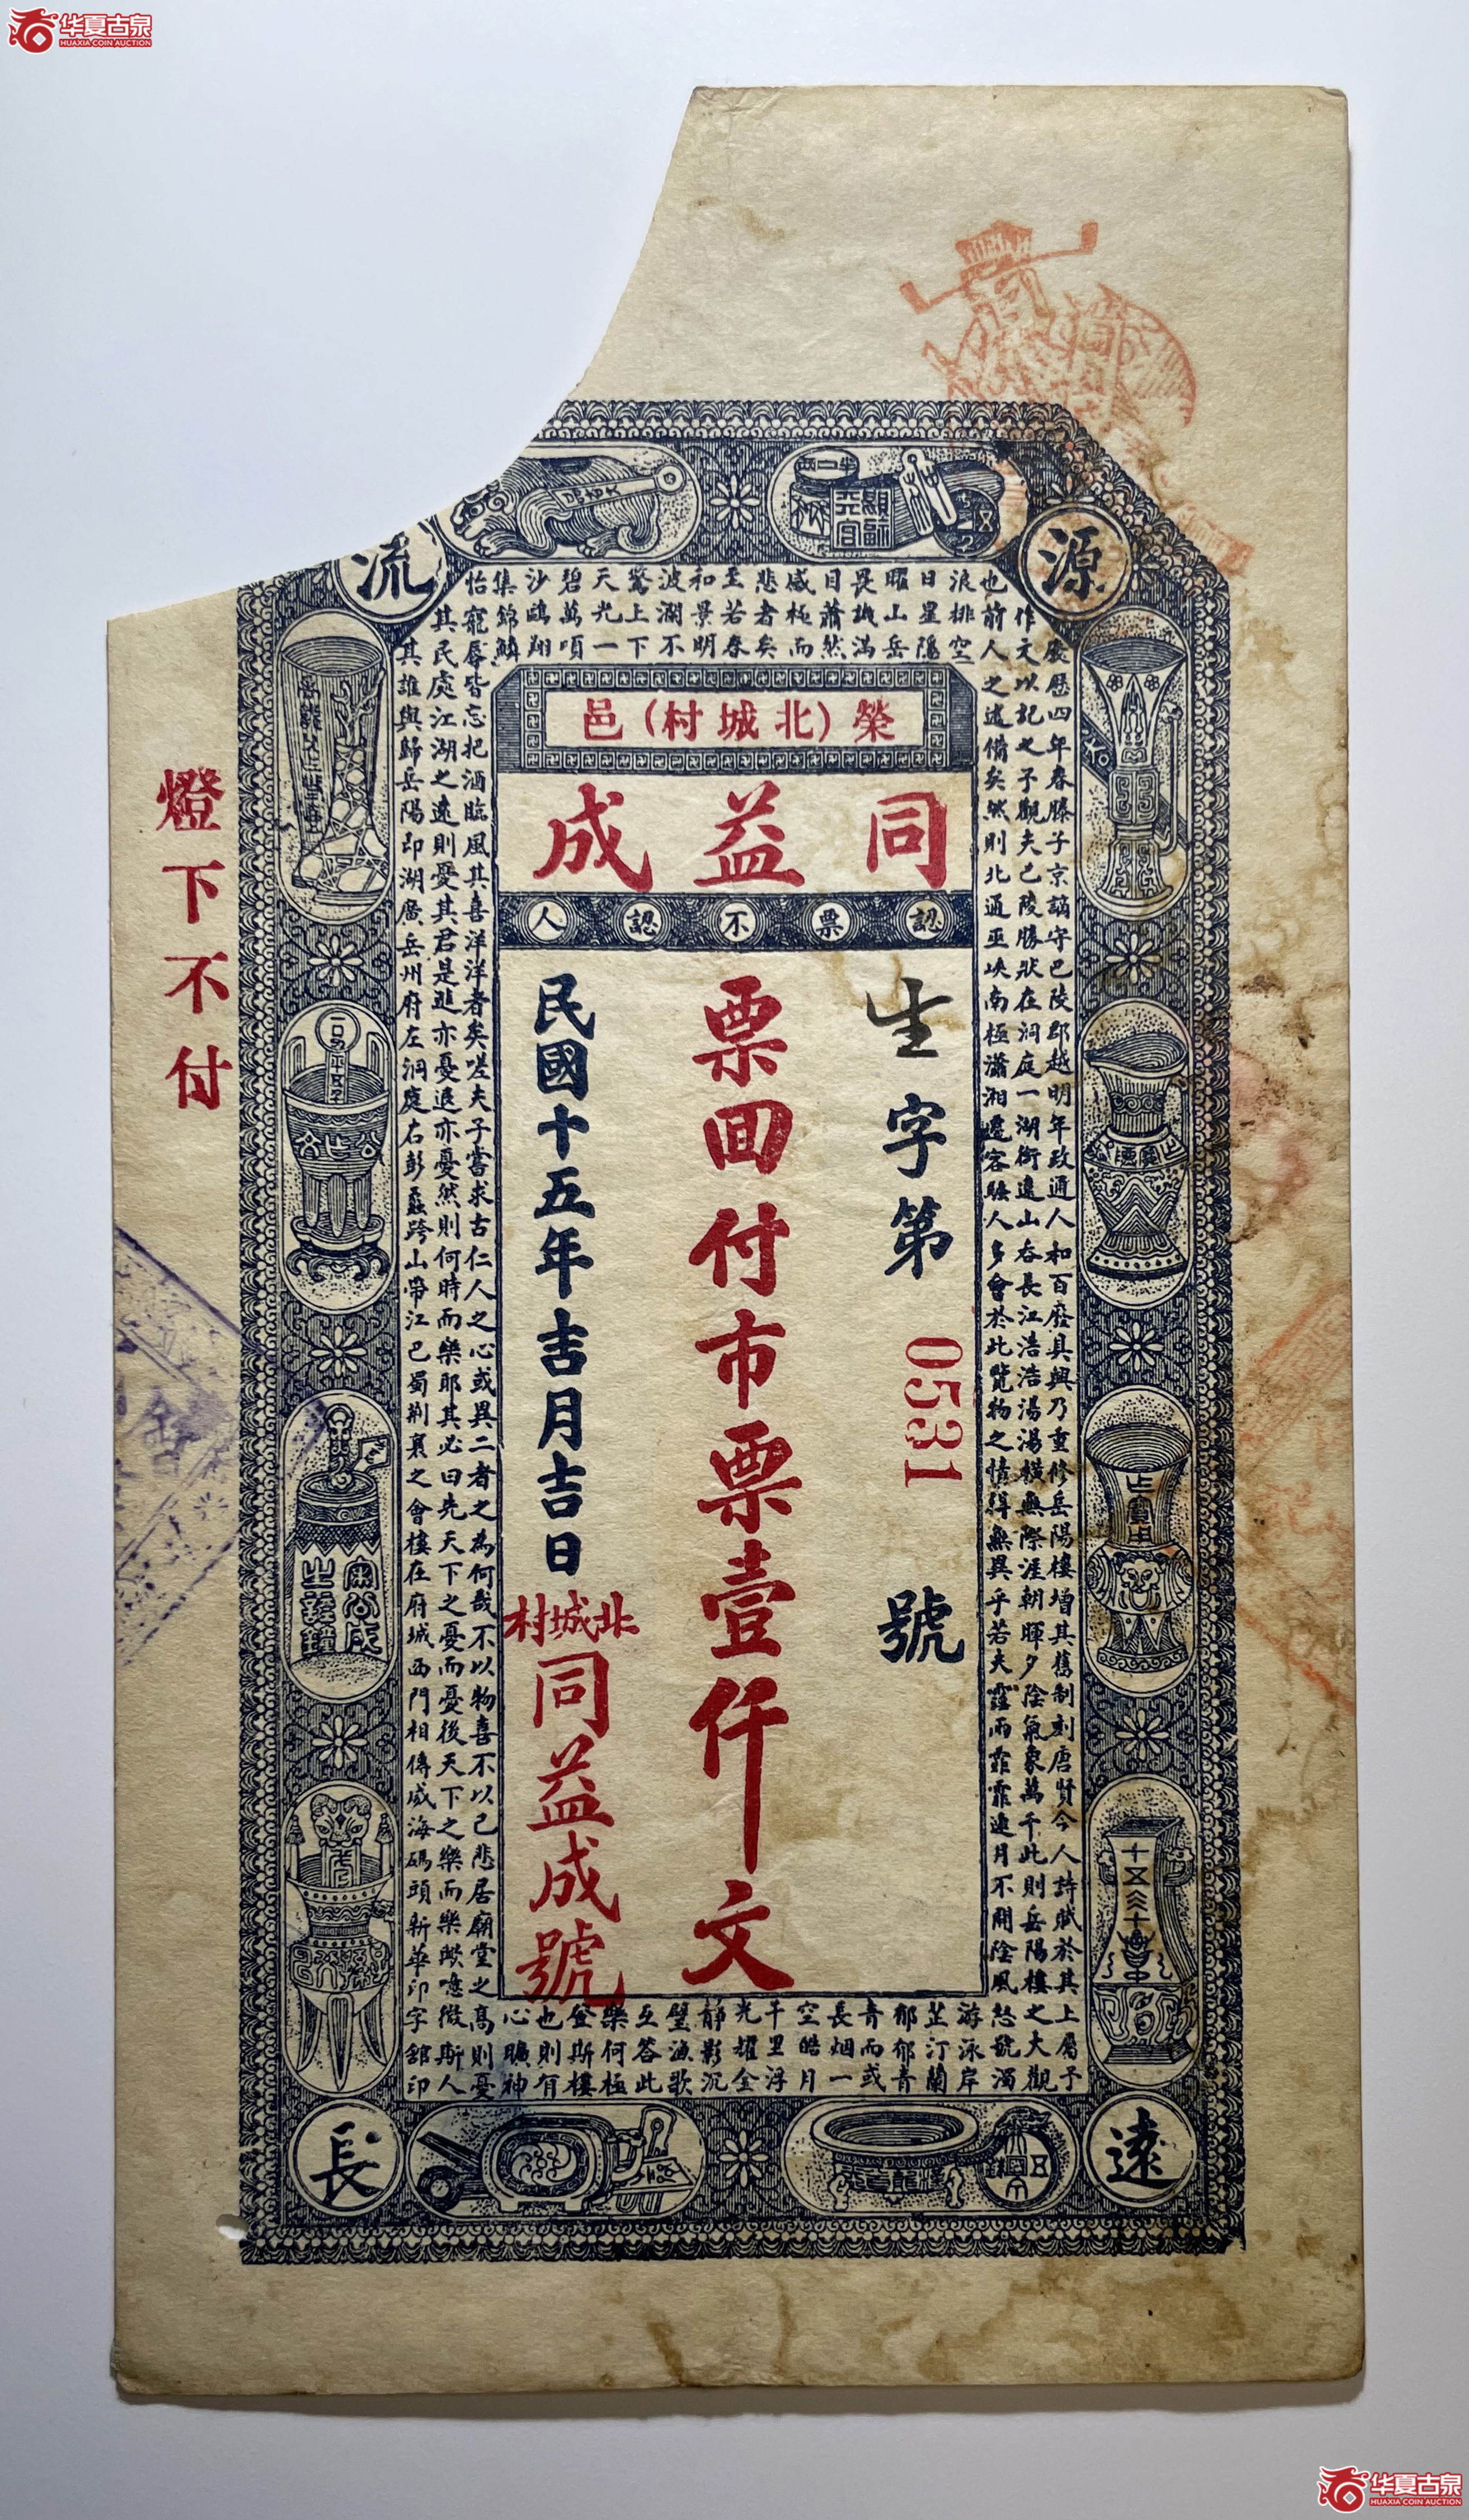 华夏古泉
HUAXIA COIN AUCTION
源
流
遠
長
榮(北城村)邑
同益成
認票不認人
生字第 0531 號
票囬付市票壹仟文
民國十五年吉月吉日
北城村
同益成號
燈下不付
慶歷四年春滕子京謫守巴陵郡越明年政通人和百廢具興乃重修岳陽樓增其舊制刻唐賢今人詩賦於其上屬予
作文以記之予觀夫巴陵勝狀在洞庭一湖銜遠山吞長江浩浩湯湯橫無際涯朝暉夕陰氣象萬千此則岳陽樓之大觀
也前人之述備矣然則北通巫峽南極瀟湘遷客騷人多會於此覽物之情得無異乎若夫霪雨霏霏連月不開陰風怒號濁
浪排空
日星隱
曜山岳
畏譏滿
目蕭然
感極而
悲者矣
至若春
和景明
波瀾不
驚上下
天光一
碧萬頃
沙鷗翔
集錦鱗
游泳岸
芷汀蘭
郁郁青
青而或
長烟一
空皓月
千里浮
光耀金
靜影沉
璧漁歌
互答此
樂何極
登斯樓
也則有
心曠神
怡寵辱皆忘把酒臨風其喜洋洋者矣嗟夫予嘗求古仁人之心或異二者之為何哉不以物喜不以己悲居廟堂之高則憂
其民處江湖之遠則憂其君是進亦憂退亦憂然則何時而樂耶其必曰先天下之憂而憂後天下之樂而樂歟噫微斯人
其誰與歸岳陽即湖廣岳州府左洞庭右彭蠡跨山帶江巴蜀荆襄之會樓在府城西門相傳威海碼頭新華印字舘印
华夏古泉
HUAXIA COIN AUCTION